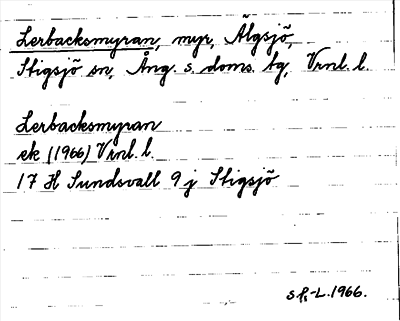 Lerbacksmyran, myr, Älgsjö,
Stigsjö sn, Ång. s. doms. tg, Vrnl. l.
Lerbacksmyran
ek (1966) Vrnl. l.
17 H Sundsvall 9 j Stigsjö
1966.